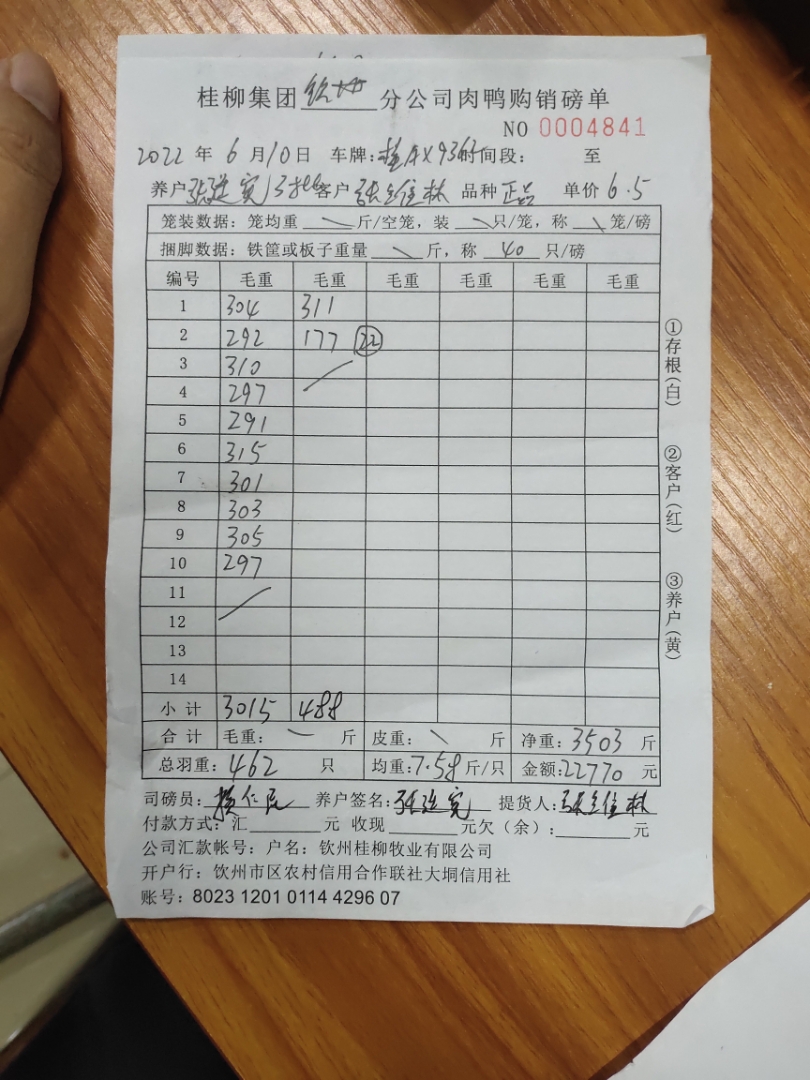 桂柳集团钦州分公司肉鸭购销磅单
NO 0004841
2022 年 6 月 10 日 车牌:桂AX936 时间段: 至
养户 张 客户 张 林 品种 正品 单价 6.5
笼装数据: 笼均重 \ 斤/空笼, 装 \ 只/笼, 称 \ 笼/磅
捆脚数据: 铁筐或板子重量 \ 斤, 称 40 只/磅
编号 毛重 毛重 毛重 毛重 毛重 毛重
1 304 311
2 292 177 22
3 310
4 297
5 291
6 315
7 301
8 303
9 305
10 297
11
12
13
14
小计 3015 488
合计 毛重: 一 斤 皮重: \ 斤 净重: 3503 斤
总羽重: 462 只 均重: 7.58 斤/只 金额: 22770 元
司磅员: 仁 养户签名: 张 提货人: 张 林
付款方式: 汇 元 收现 元欠（余）: 元
公司汇款帐号: 户名: 钦州桂柳牧业有限公司
开户行: 钦州市区农村信用合作联社大垌信用社
账号: 8023 1201 0114 4296 07
①存根(白)
②客户(红)
③养户(黄)